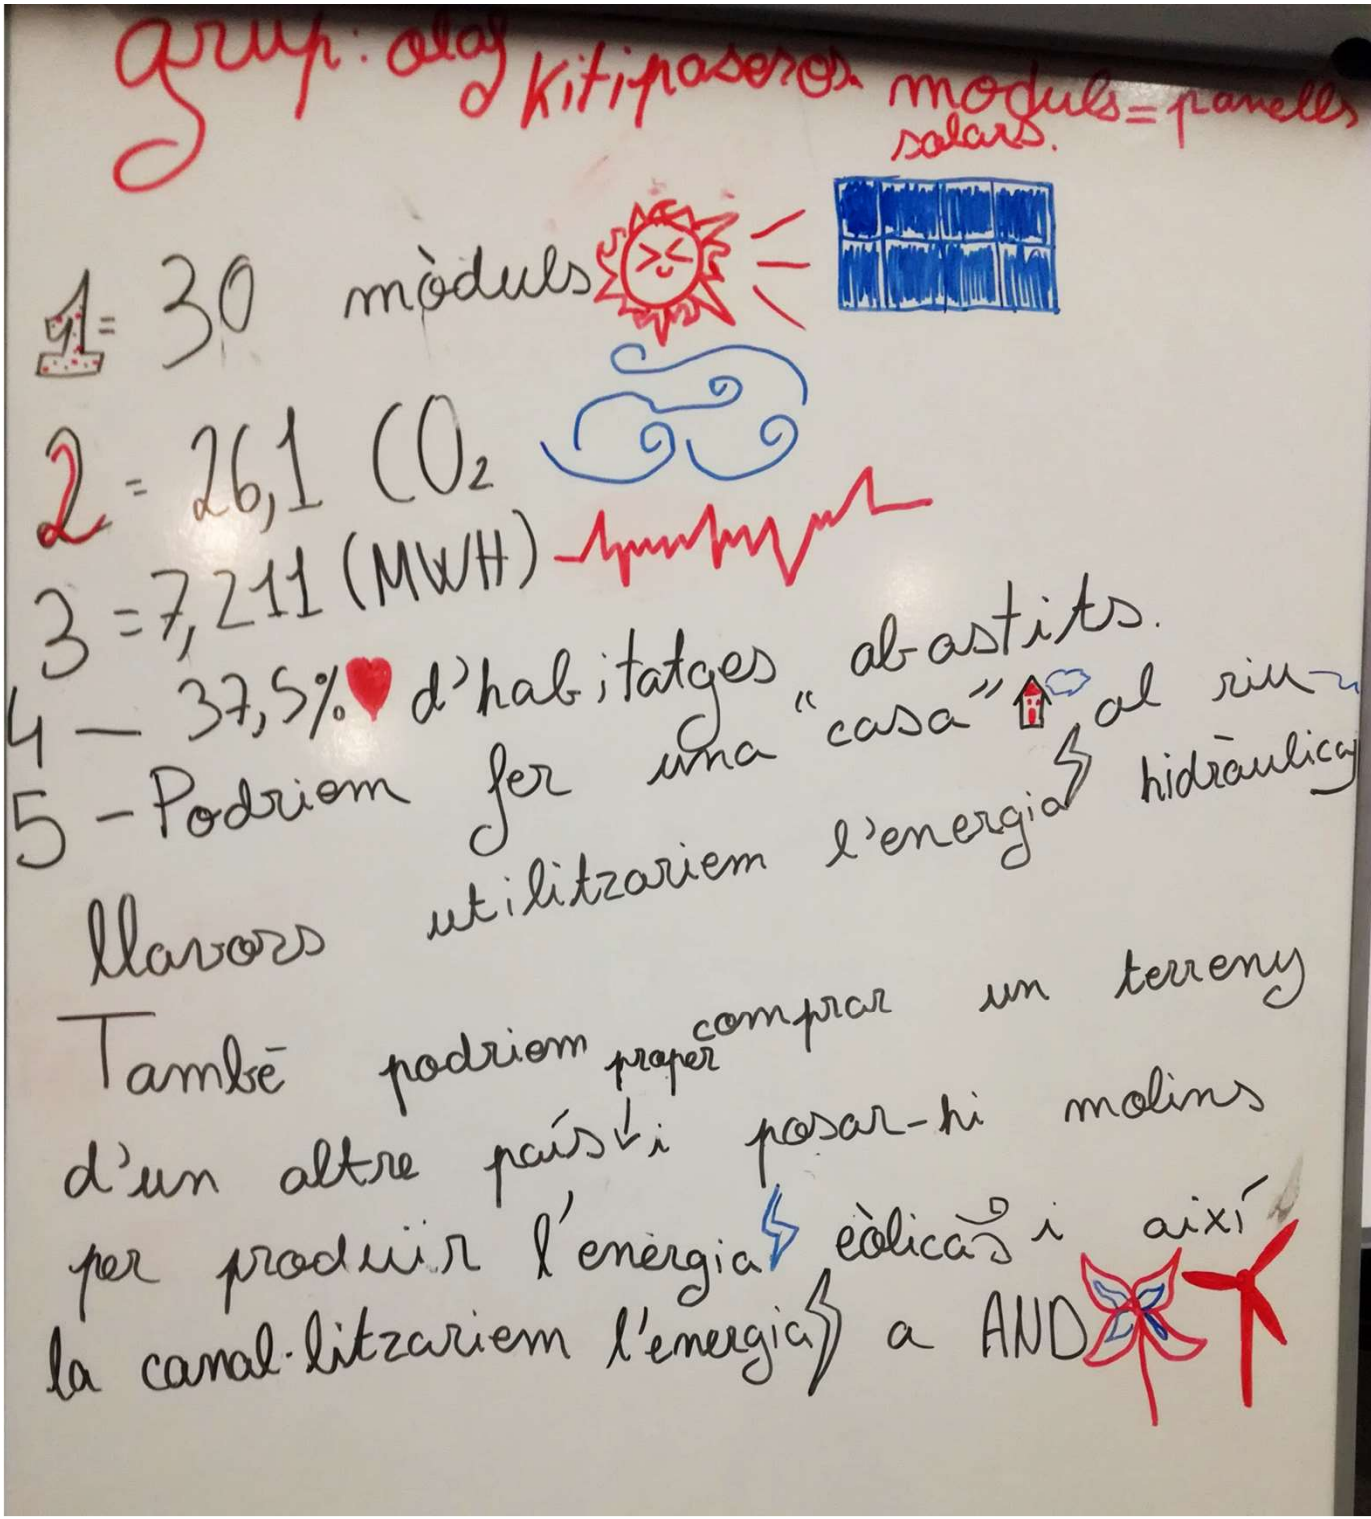 grup: olaf Kitipaseros. moduls = panells
solars.
1 = 30 mòduls
2 = 26,1 CO₂
3 = 7,211 (MWH)
4 — 37,5% d'habitatges abastits.
5 - Podriem fer una "casa" al riu
llavors utilitzariem l'energia hidràulica
També podriem comprar un terreny
proper
d'un altre país i posar-hi molins
per produïr l'energia eòlica i així
la canal·litzariem l'energia a AND